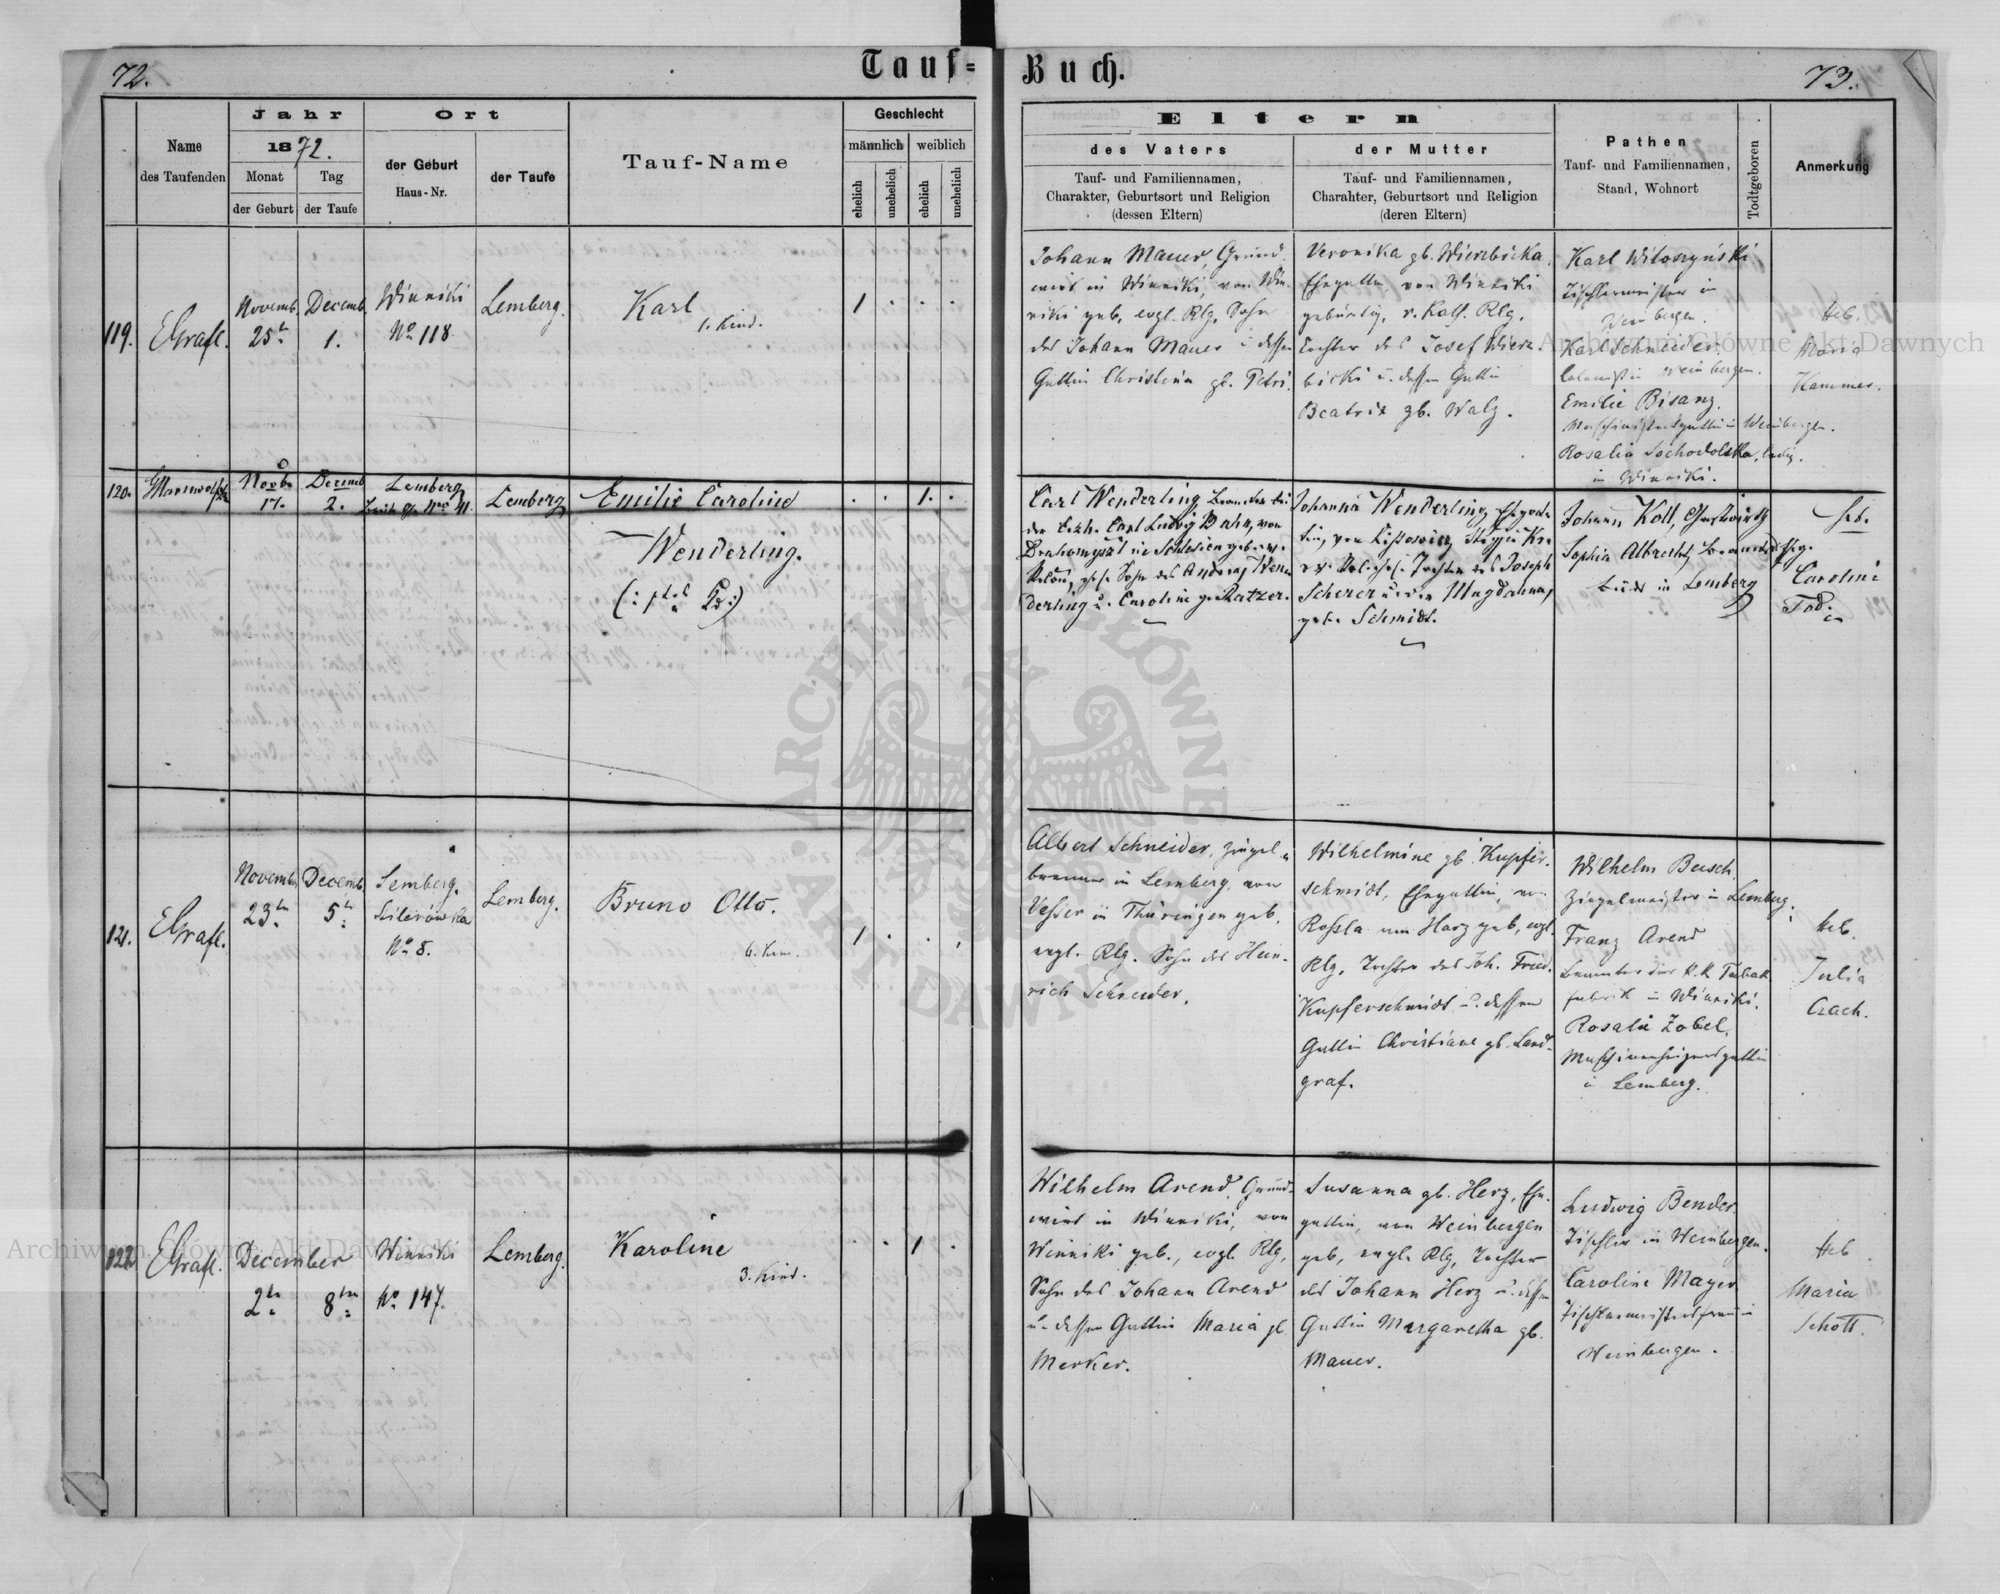 72.
Tauf=
Buch.
73.
Name
des Taufenden
Jahr
1872.
Monat
der Geburt
Tag
der Taufe
Ort
der Geburt
Haus-Nr.
der Taufe
Tauf-Name
Geschlecht
männlich
weiblich
ehelich
unehelich
ehelich
unehelich
Eltern
des Vaters
Tauf- und Familiennamen,
Charakter, Geburtsort und Religion
(dessen Eltern)
der Mutter
Tauf- und Familiennamen,
Charahter, Geburtsort und Religion
(deren Eltern)
Pathen
Tauf- und Familiennamen,
Stand, Wohnort
Todtgeboren
Anmerkung
119.
EGrafl.
Novemb.
25
Decemb.
1.
Winniki
No 118
Lemberg.
Karl
1. Kind.
1
Johann Mauer, Grund-
wirt in Winniki, von Win-
niki geb, evgl. Rlg, Sohn
des Johann Mauer u dessen
Gattin Christina gb. Petri.
Veronika gb. Wierzbicka
Ehegattin, von Winniki
gebürtig, r. Kath. Rlg,
Tochter des Josef Wierz-
bicki u. dessen Gattin
Beatrix gb. Walz.
Karl Witoszyński
Tischlermeister in
Weinbergen.
Karl Schneider
Colonist in Weinbergen.
Emilie Bisanz
gattin in Weinbergen.
Rosalia Sochodolska, ledig.
in Winniki.
Heb.
Maria
Kammer.
120.
Novb.
17.
Decemb
2.
Lemberg
Nro 41.
Lemberg
Emilie Caroline
Wenderling.
1.
Carl Wenderling, Beamter bei
der Erzh. Carl Ludwig Bahn, von
in Schlesien
Sohn des Andreas Wen-
derling u. Caroline g. Ratzer.
Johanna Wenderling, Ehegat-
tin, von
Tochter des Joseph
Scherer u. der Magdalena,
geb. Schmidt.
Johann Koll, Gastwirth
Sophia Albrecht,
beide in Lemberg
Heb.
Caroline
Tod.
121.
EGrafl.
Novemb.
23
Decemb.
5
Lemberg.
No 8.
Lemberg.
Bruno Otto.
6. Kind.
1
Albert Schneider, Ziegel-
brenner in Lemberg, von
Vesser in Thüringen geb,
evgl. Rlg. Sohn des Hein-
rich Schneider.
Wilhelmine gb. Kupfer-
schmidt, Ehegattin, von
Rossla am Harz geb, evgl.
Rlg, Tochter des Joh. Fried.
Kupferschmidt u. dessen
Gattin Christiane gb. Land-
graf.
Wilhelm Busch
Ziegelmeister in Lemberg.
Franz Arend
Beamter der k. k. Tabak
fabrik in Winniki.
Rosalie Zobel,
gattin
in Lemberg.
Heb.
Julia
Czach.
122.
EGrafl.
December
2
8
Winniki
No 147.
Lemberg.
Karoline
3. Kind.
1
Wilhelm Arend, Grund-
wirt in Winniki, von
Winniki geb., evgl. Rlg,
Sohn des Johann Arend
u. dessen Gattin Maria gb.
Merker.
Susanna gb. Herz, Ehe-
gattin, von Weinbergen
geb, evgl. Rlg, Tochter
des Johann Herz u. dessen
Gattin Margaretha gb.
Mauer.
Ludwig Bender
Tischler in Weinbergen.
Caroline Mayer
Tischlermeistersfrau in
Weinbergen.
Heb
Maria
Schott.
Archiwum Główne Akt Dawnych
Archiwum Główne Akt Dawnych
ARCHIWUM GŁÓWNE
AKT DAWNYCH